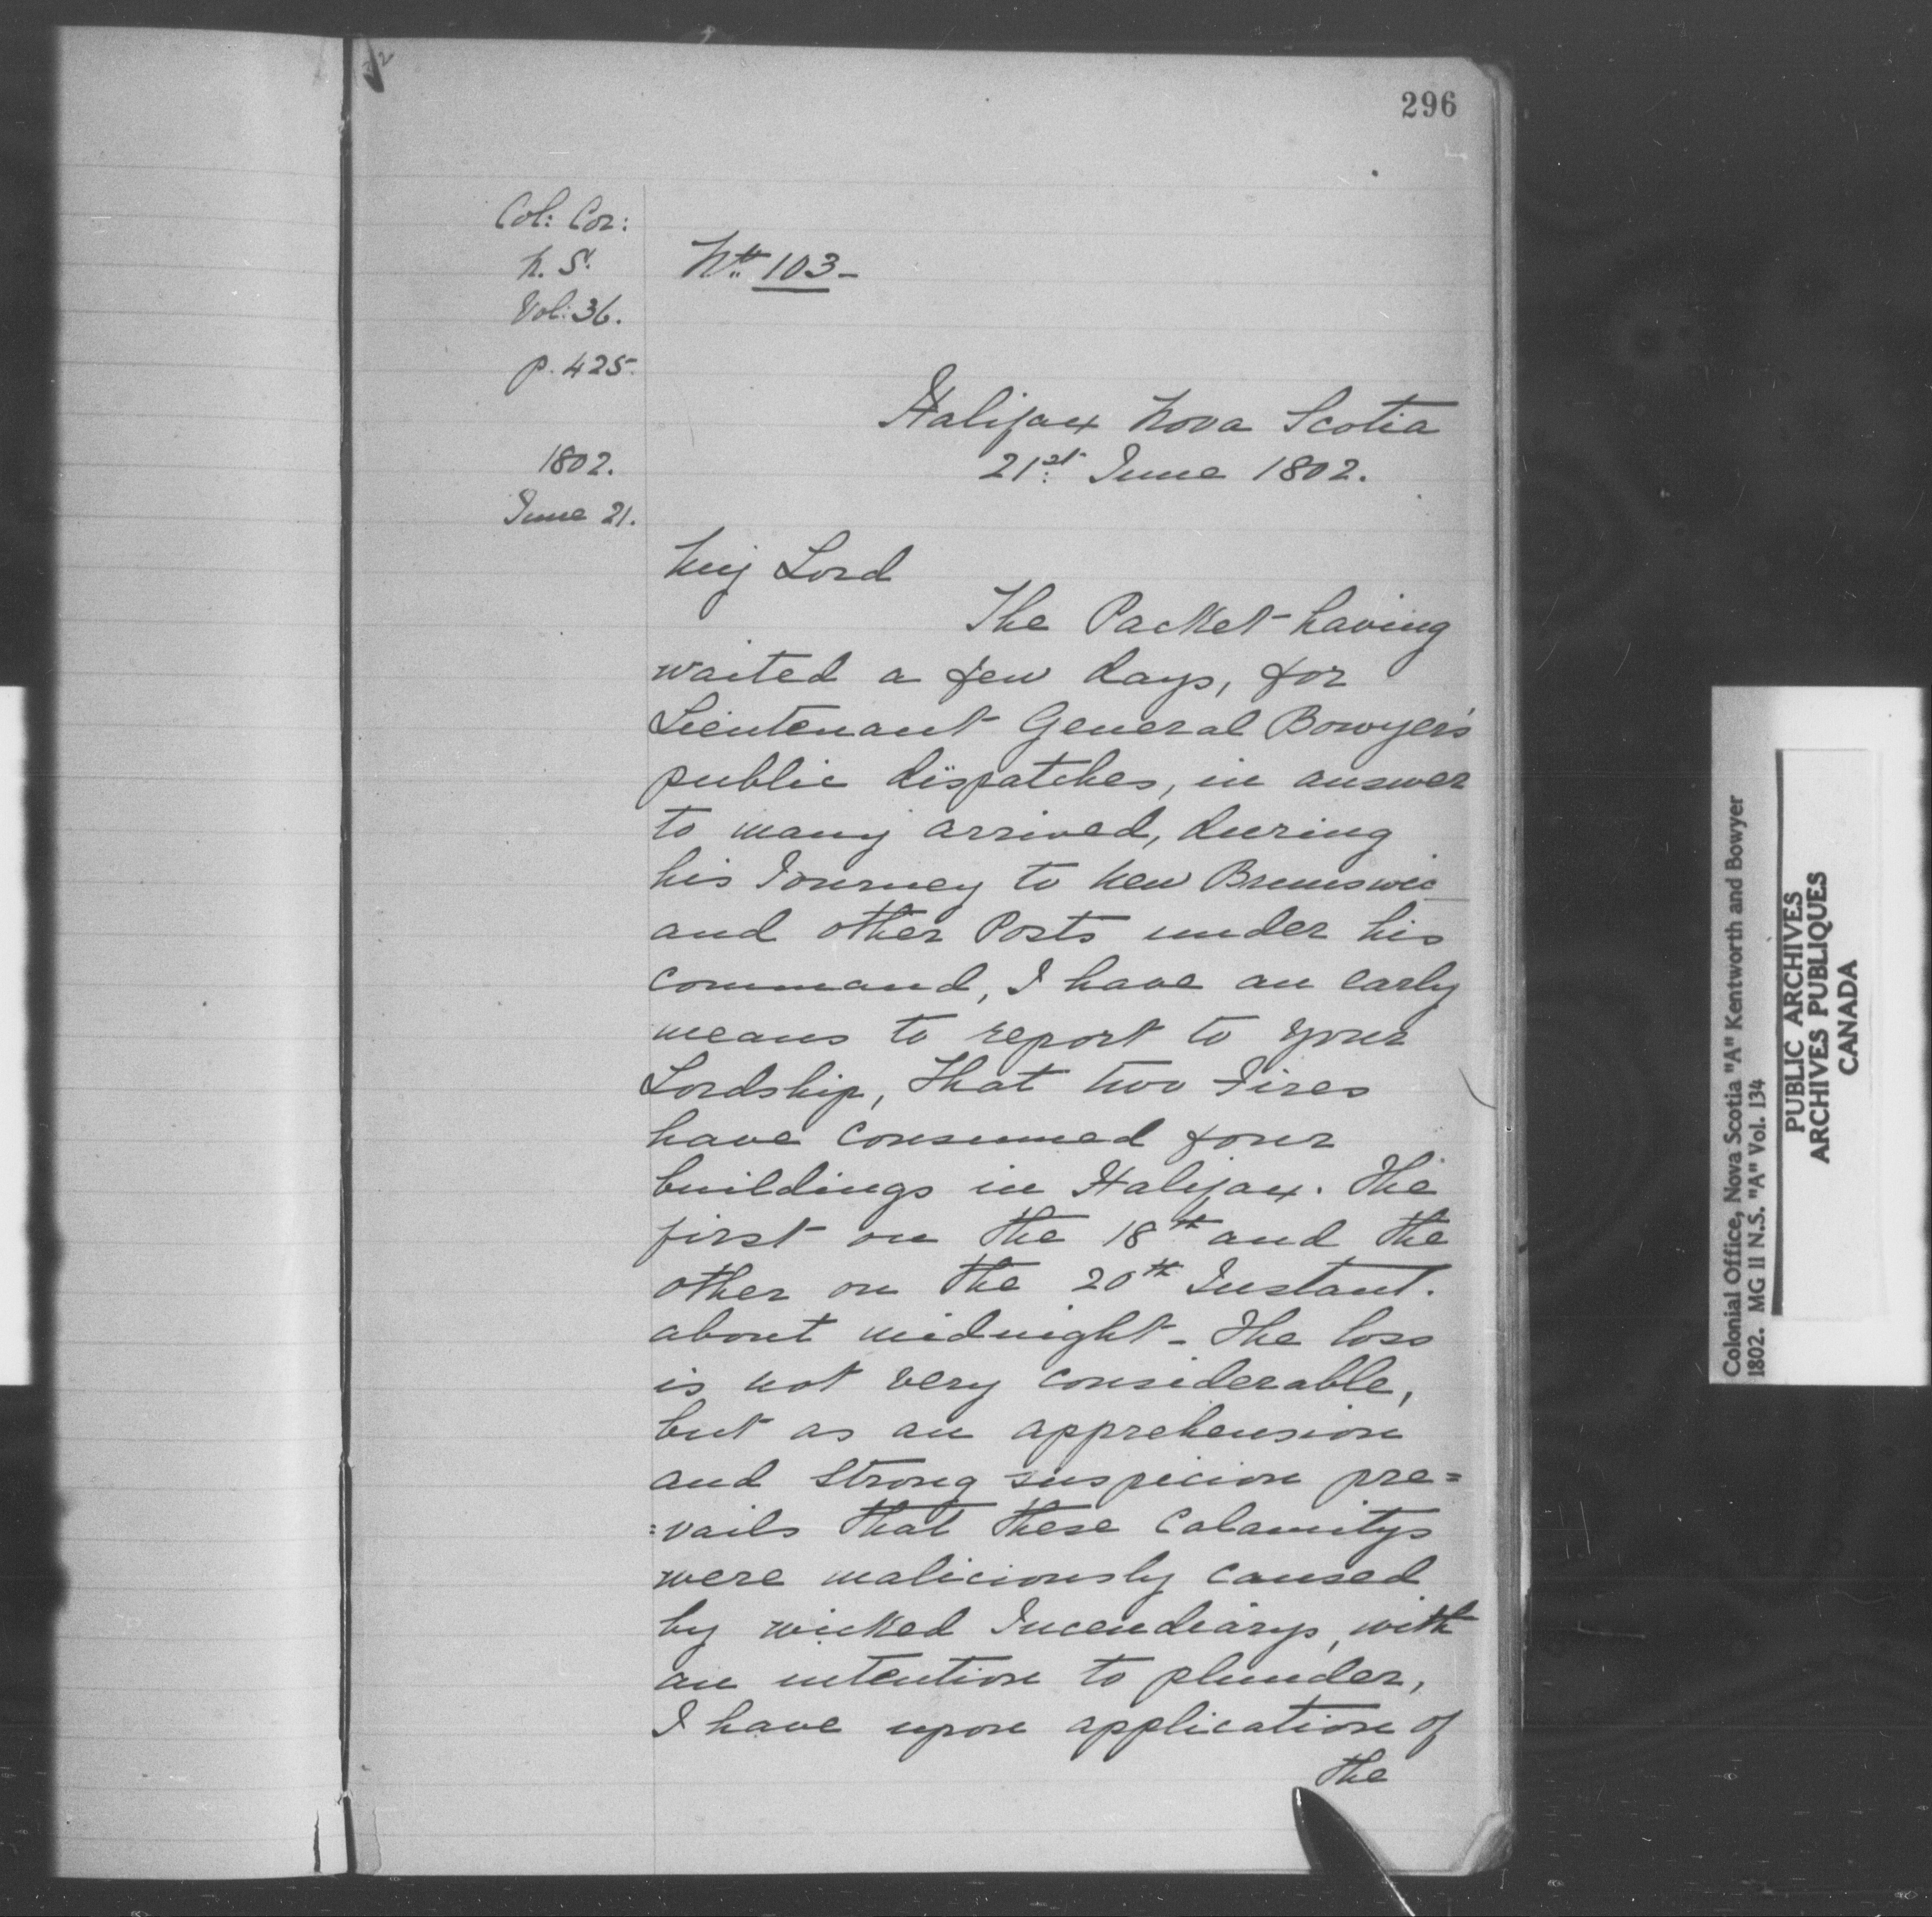 296
Col: Cor:
N. S.
Vol: 36.
p. 425.
No. 103-
Halifax Nova Scotia
21st June 1802.
1802.
June 21.
My Lord
The Packet having
waited a few days, for
Lieutenant General Bowyer's
public dispatches, in answer
to many arrived, during
his Journey to New Brunswic
and other Posts under his
command, I have an early
means to report to your
Lordship, That two Fires
have consumed four
buildings in Halifax. The
first on the 18th and the
other on the 20th Instant.
about midnight - The loss
is not very considerable,
but as an apprehension
and strong suspicion pre=
=vails that these Calamitys
were maliciously caused
by wicked Incendiarys, with
an intention to plunder,
I have upon application of
the
Colonial Office, Nova Scotia "A" Kentworth and Bowyer
1802. MG 11 N.S. "A" Vol. 134
PUBLIC ARCHIVES
ARCHIVES PUBLIQUES
CANADA